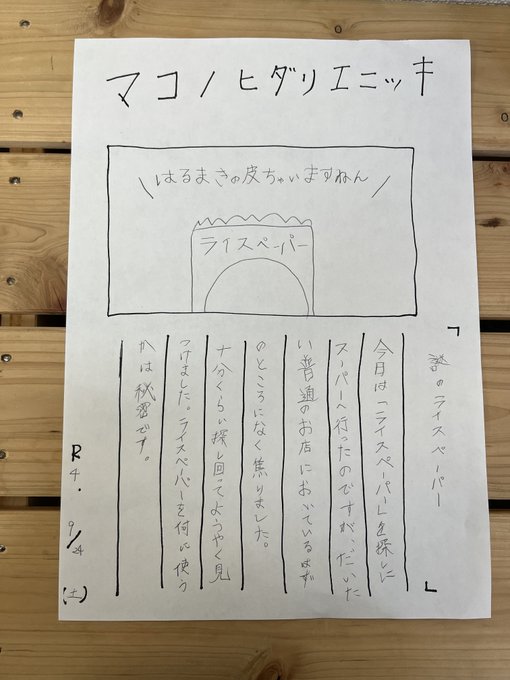 マコノヒダリエニッキ
\はるまきの皮ちゃいますねん/
ライスペーパー
「謎のライスペーパー」
今月は「ライスペーパー」を探しに
スーパーへ行ったのですが、だいた
い普通のお店においているはず
のところになく焦りました。
十分くらい探し回ってようやく見
つけました。ライスペーパーを何に使う
かは秘密です。
R4.9/24(土)